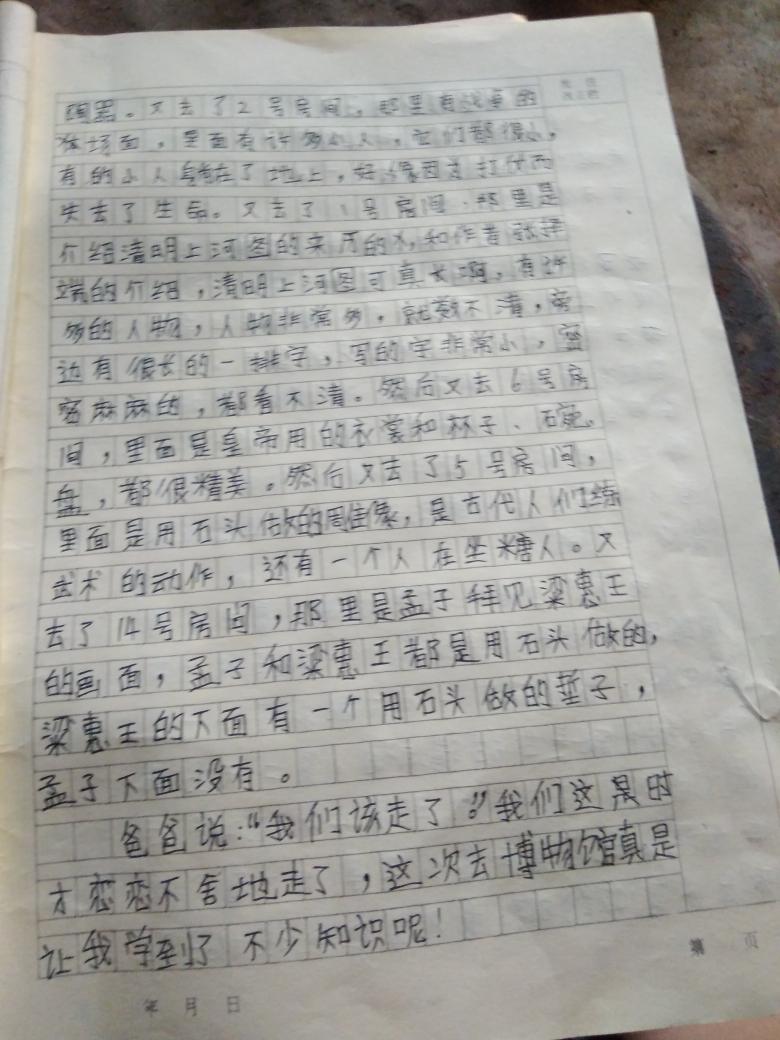 陶器。又去了2号房间，那里有战争的
场面，里面有许多小人，它们都很小，
有的小人躺在了地上，好像因为打仗而
失去了生命。又去了1号房间，那里是
介绍清明上河图的来历的，和作者张择
端的介绍，清明上河图可真长啊，有许
多的人物，人物非常多，就数不清，旁
边有很长的一排字，写的字非常小，密
密麻麻的，都看不清。然后又去6号房
间，里面是皇帝用的衣裳和杯子、石
盘，都很精美。然后又去了5号房间，
里面是用石头做的周佳像，是古代人们练
武术的动作，还有一个人在坐糖人。又
去了14号房间，那里是孟子拜见梁惠王
的画面，孟子和梁惠王都是用石头做的，
梁惠王的下面有一个用石头做的垫子，
孟子下面没有。
爸爸说：“我们该走了。”我们这是时
才恋恋不舍地走了，这次去博物馆真是
让我学到了不少知识呢！
年 月 日
第 页